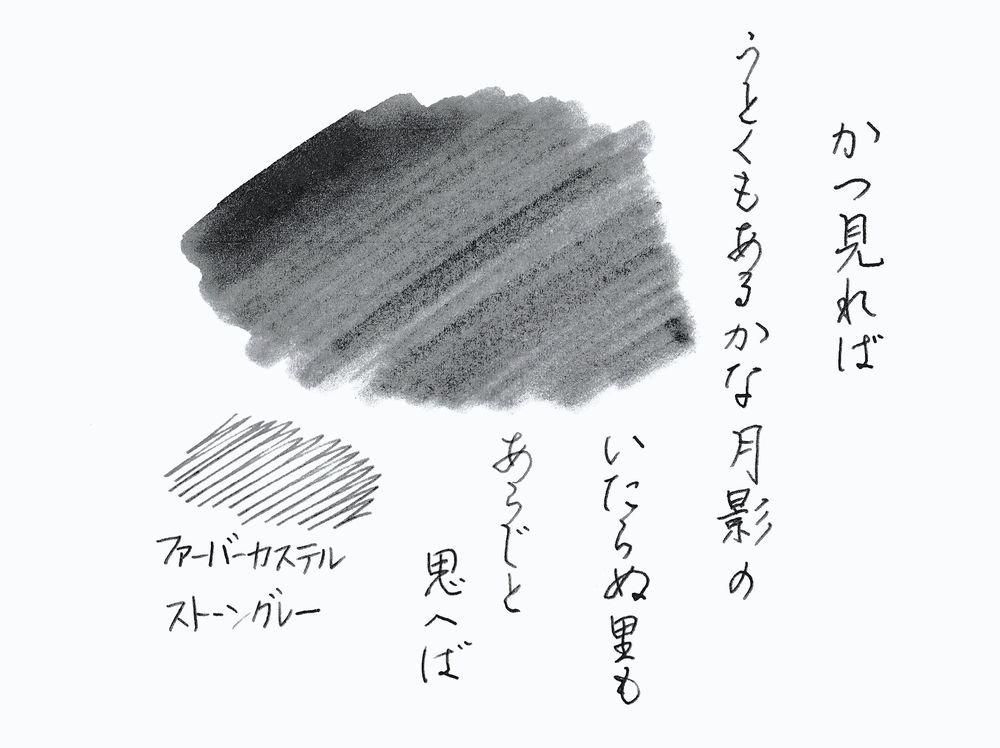 かつ見れば
うとくもあるかな月影の
いたらぬ里も
あらじと
思へば
ファーバーカステル
ストーングレー